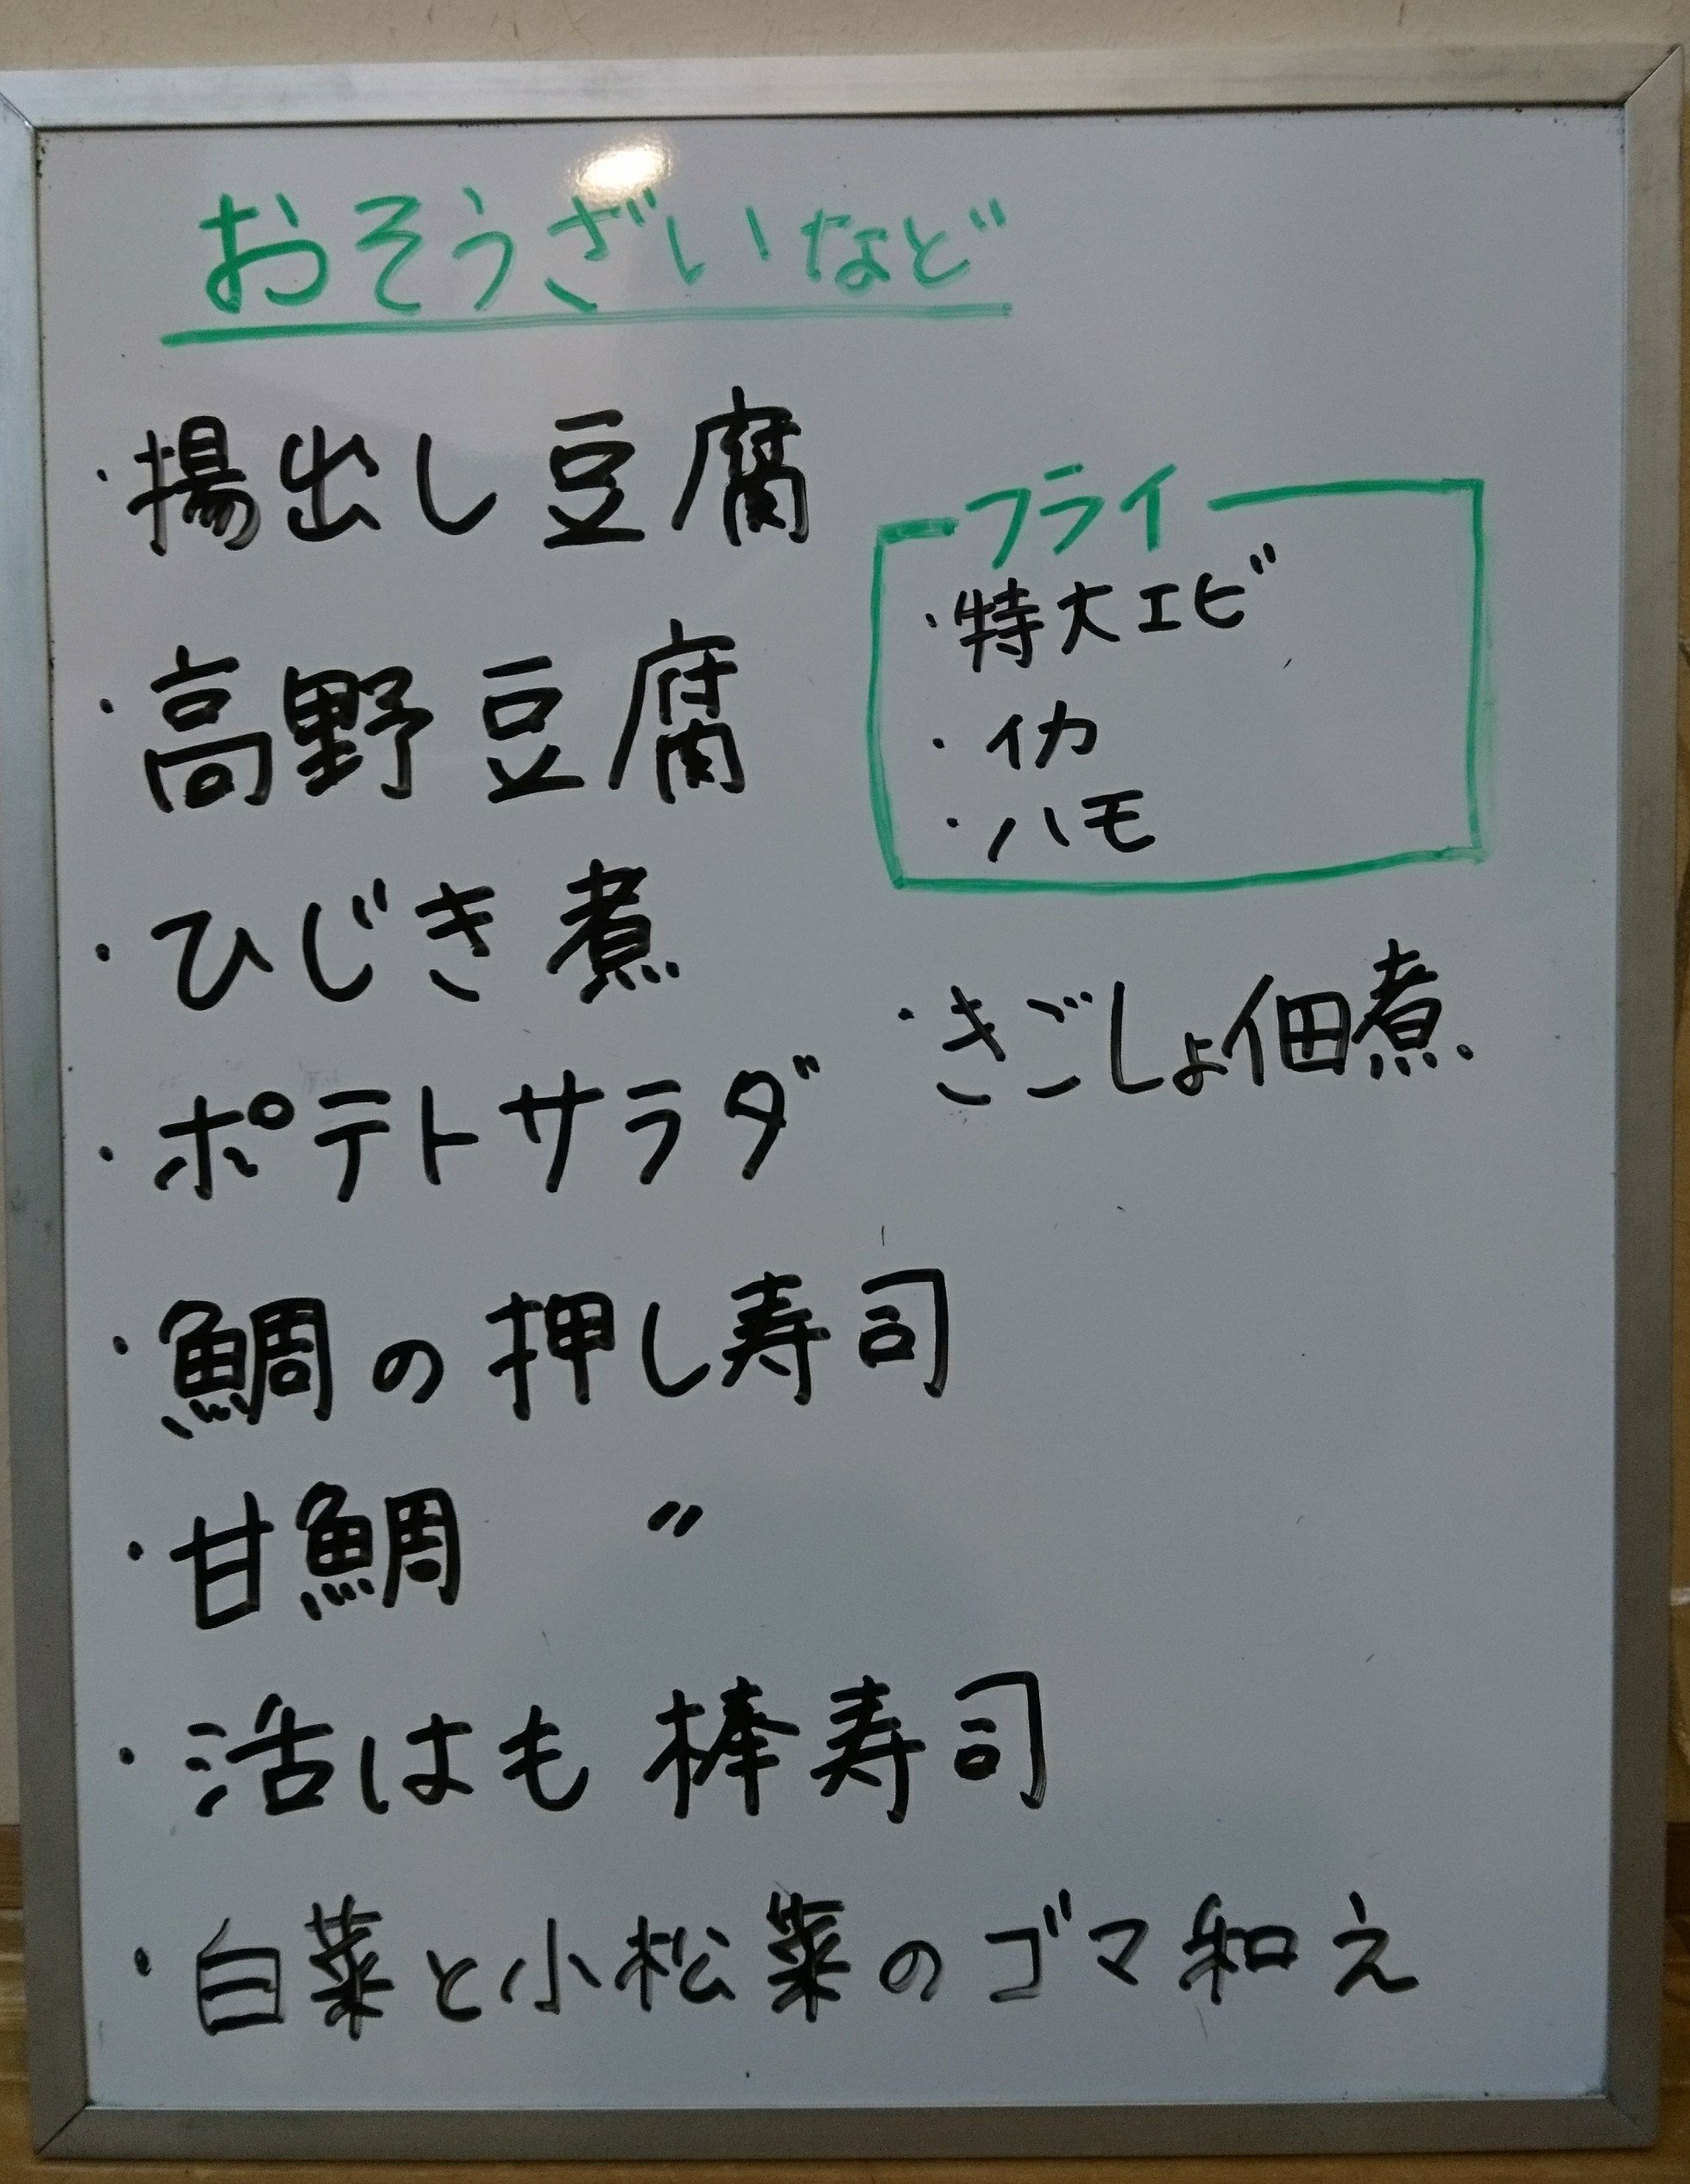 おそうざいなど
・揚出し豆腐
・高野豆腐
・ひじき煮
・ポテトサラダ
・鯛の押し寿司
・甘鯛 〃
・活はも棒寿司
・白菜と小松菜のゴマ和え
フライ
・特大エビ
・イカ
・ハモ
・きごしょ佃煮